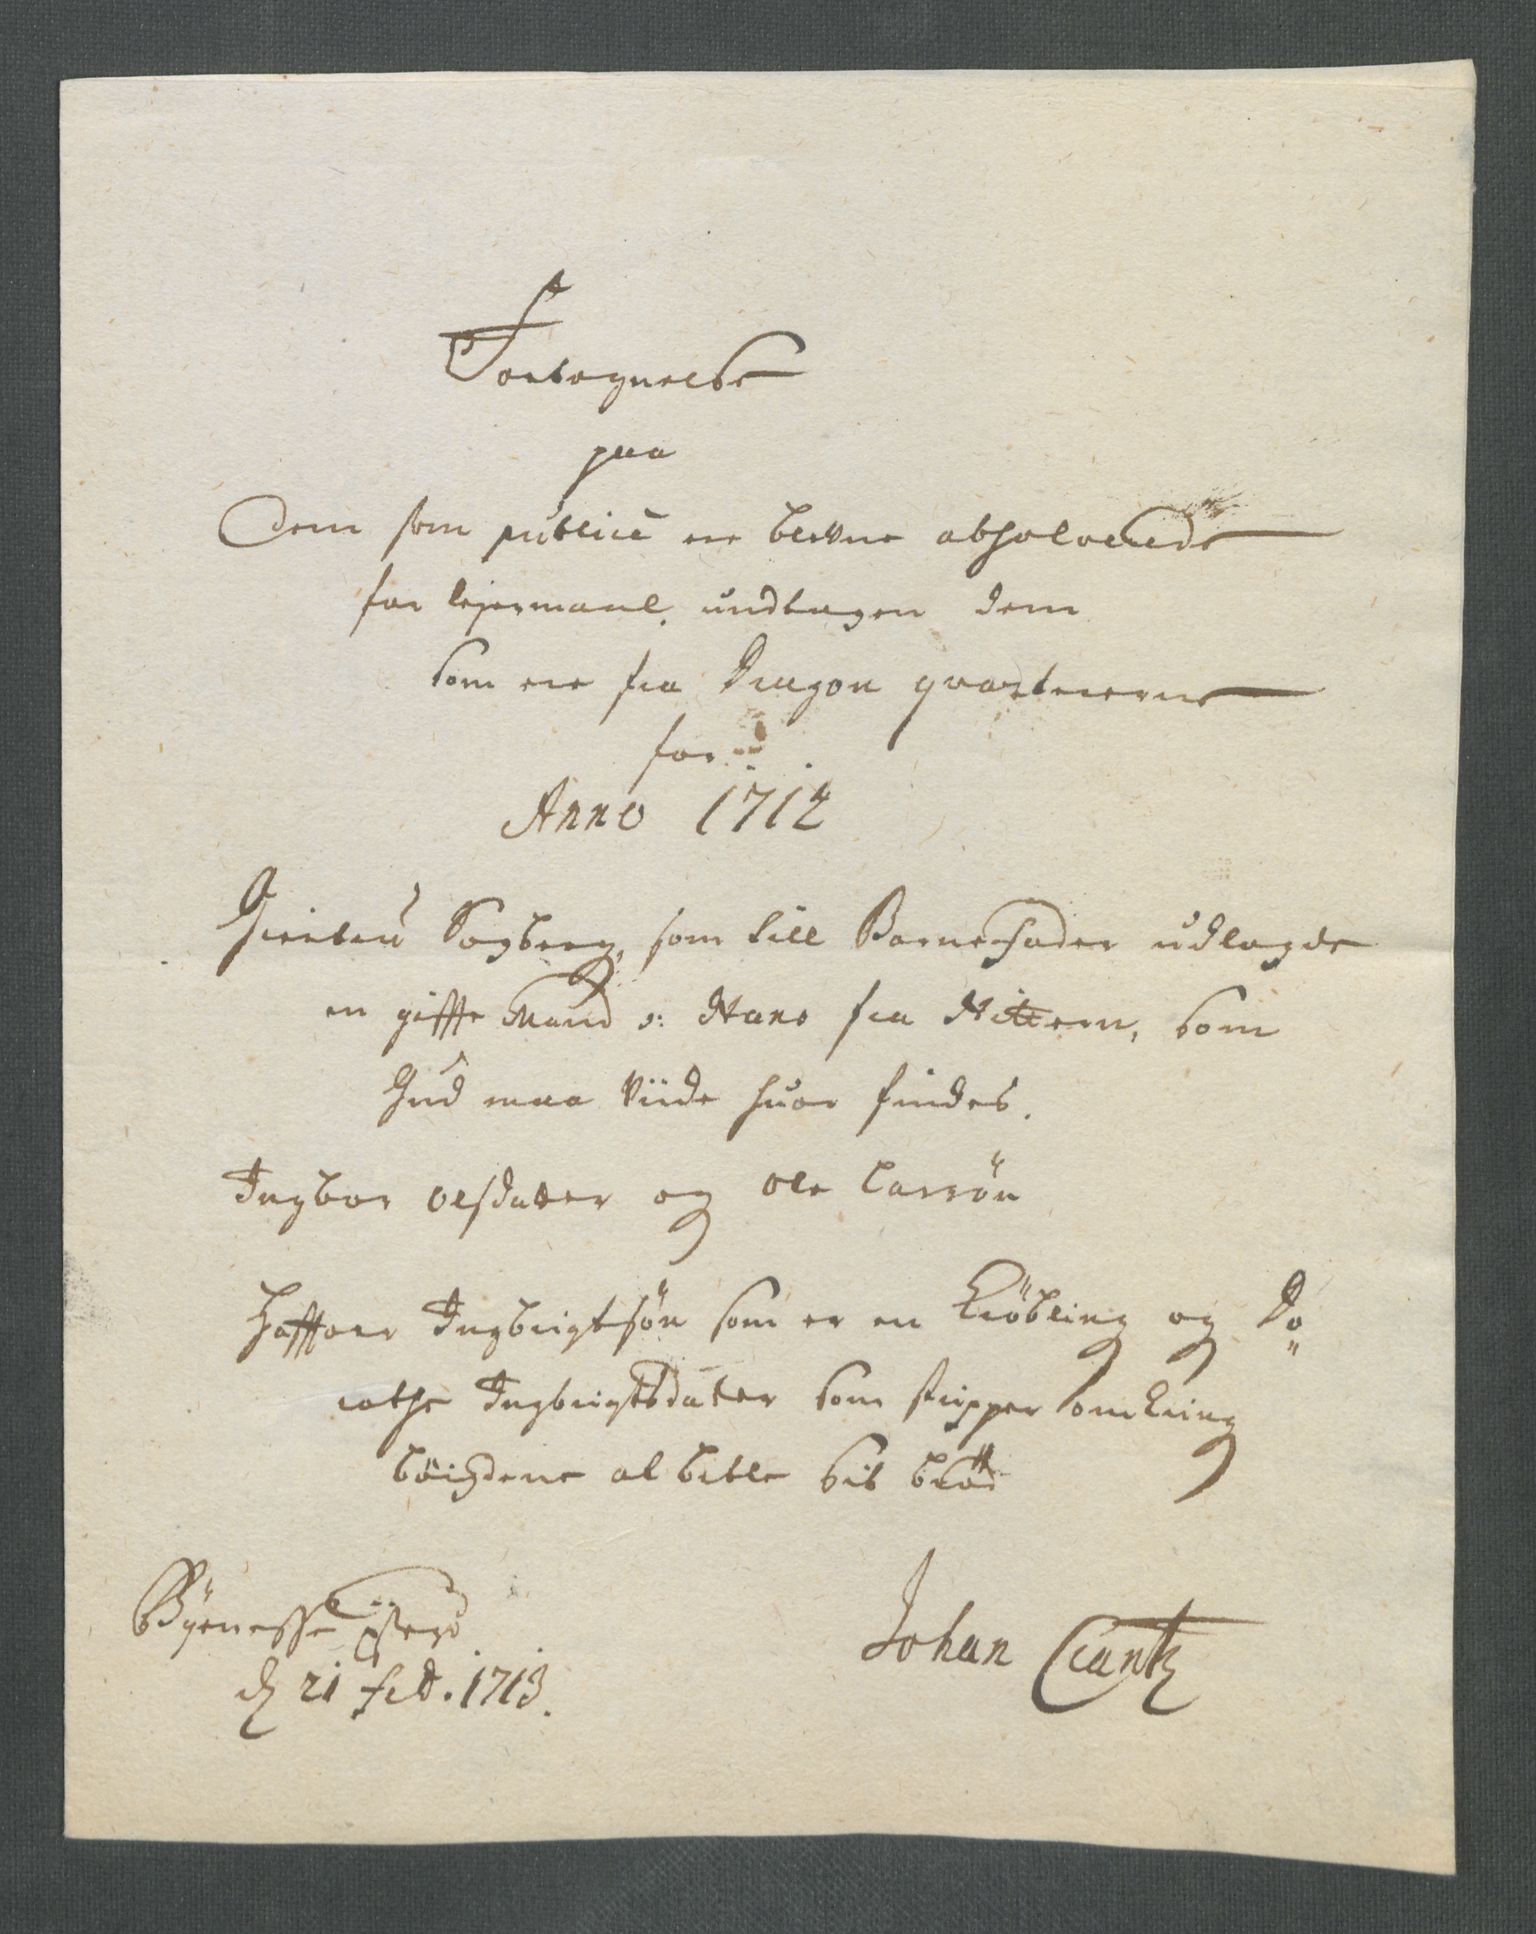 Fortegnelse
paa
Dem som publicè ere blevne absolverede
for lejermaal, undtagen dem
som ere fra Dragon qvarteererne
for
Anno 1712
Sogberg, som till Barnefader udlagde
en gifft Mand n: Hans fra Hittern, som
Gud maa viide huor findes.
Ingbor Olsdatter og Ole Larsøn
Haffuor Ingbrigtsøn som er en Krøbling og Do
rathe Ingbrigtsdatter som stripper omkring
böigdene at bitle sit brød
Byenesse Præstegd
d 21 feb. 1713.
Johan Crantz